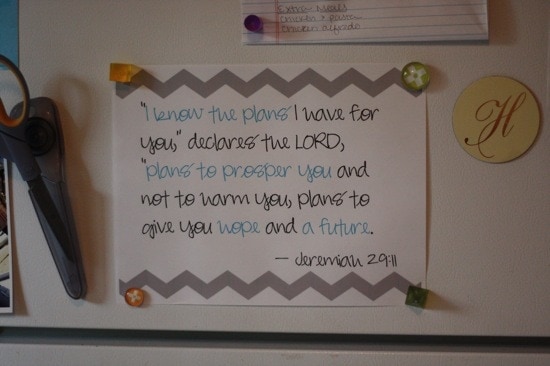 Extra Meals
chicken & pasta
chicken alfredo
"I know the plans I have for
you," declares the LORD,
"plans to prosper you and
not to harm you, plans to
give you hope and a future.
— Jeremiah 29:11
H